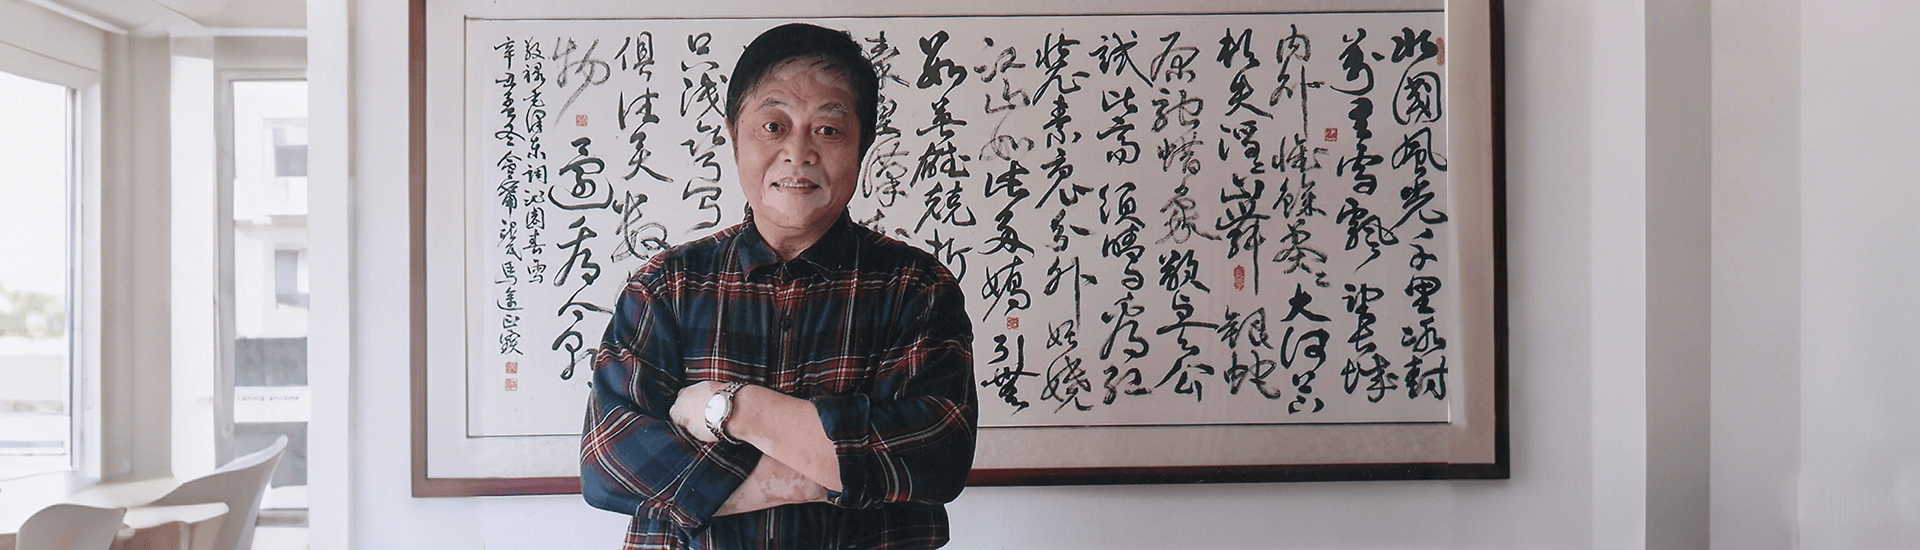 北國風光千里冰封
萬里雪飄望長城
内外惟餘莽〻大河上下
頓失滔〻山舞銀蛇
原馳蠟象欲與天公
試比高須晴日看紅
裝素裹分外妖嬈
江山如此多嬌引無
數英雄競折
秦皇漢武
只識彎弓
俱往矣數
物還看今朝
敬錄毛澤東詞沁園春雪
辛丑孟冬